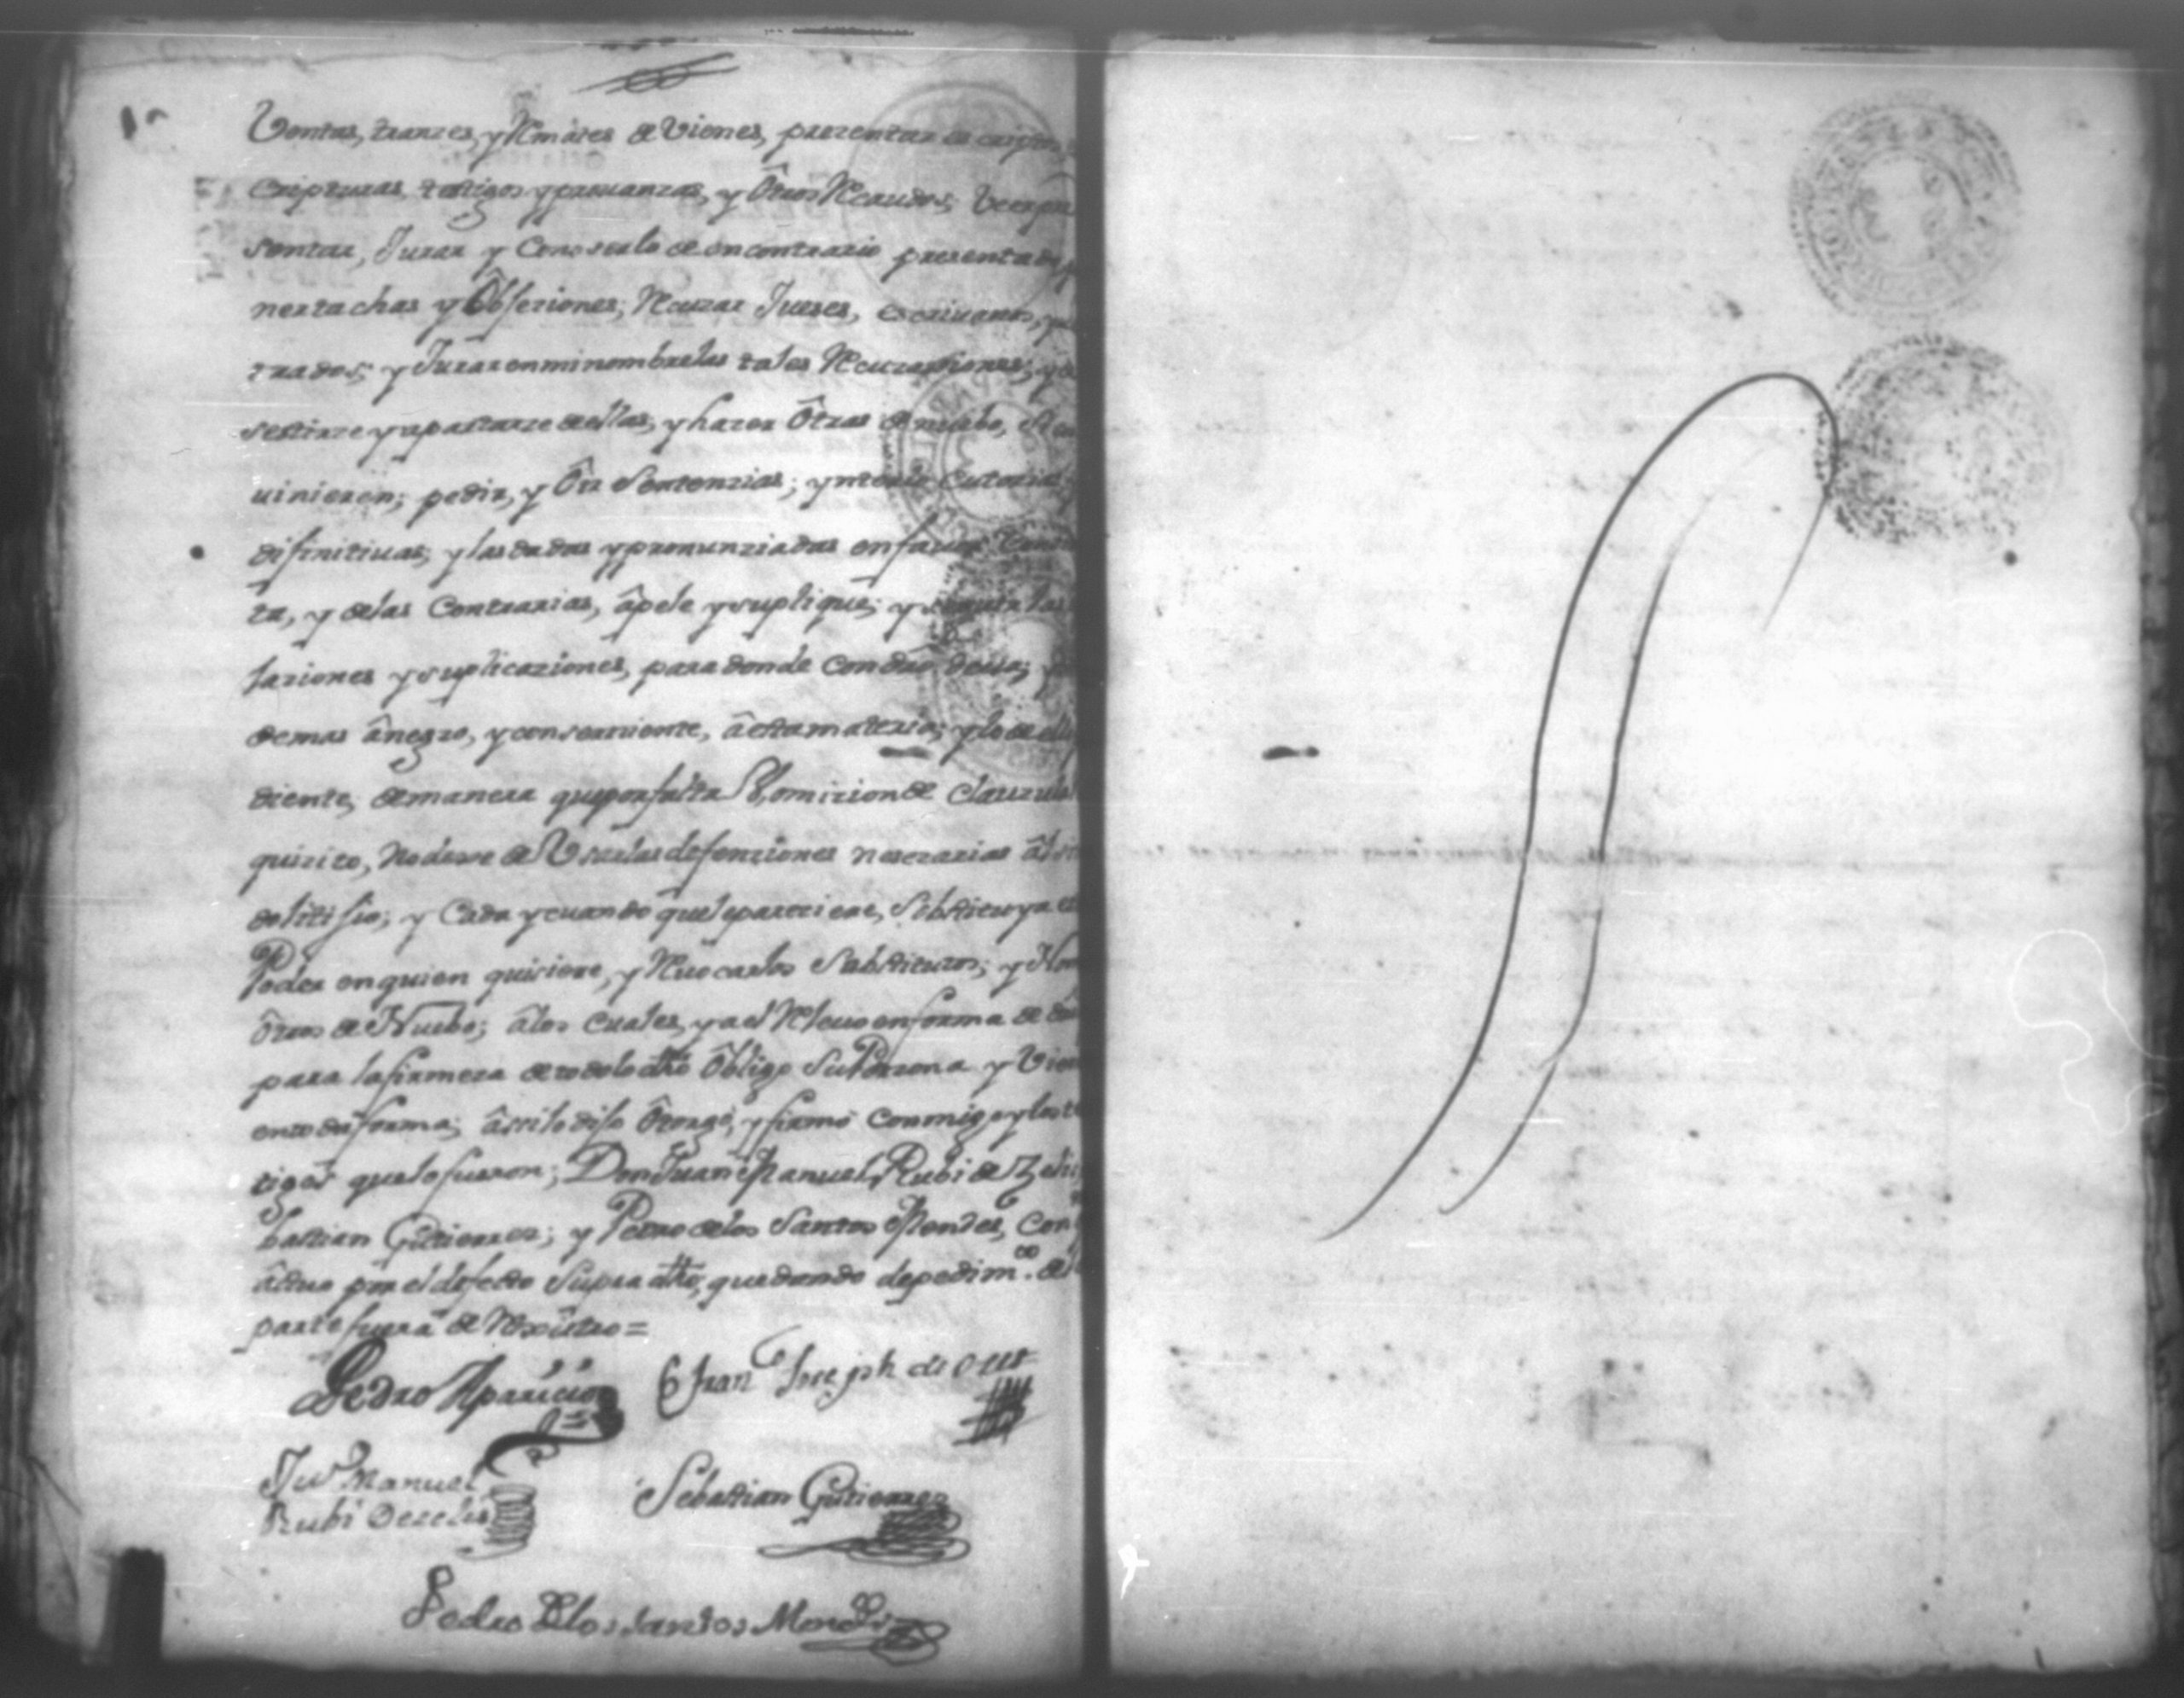 Ventas, tranzes, y Rmates de Vienes, prezentar
Cripturas, testigos y provanzas, y Ôtros Recaudos; Veer pre
sentar, Jurar y Conoserlo de en contrario presentado,
ner tachas y Ôbseciones; Recuzar Jueses, escrivanos,
trados; y Jurar en mi nombre las tales Recurassiones;
sestirse y apartarze de ellas, y hazer Ôtras de nuebo, si
uinieren; pedir, y Ôir Sentenzias;
difinitivas, y las dadas y pronunziadas en favor
ta, y de las Contrarias, âpele y suplique; y
laziones y suplicaziones, para donde con dro deva;
demas ânegzo, y conserniente, â esta materia; y lo de ella
diente, de manera que por falta U, omizion de Clauzula
quizito, no dexe de Uzar las defenziones nesezarias âl
do litijio; y Cada y cuando que le pareciere, Sobstituya
Poder en quien quisiere, y Revocar los Substitutos; y Nom
ôtros de Nuebo; â los cuales, y a el Relevo en forma de
para la firmeza de todo lo dho Ôbligo Su Perzona y Vien
en toda forma; âssi lo dijo Ôtorgó, y firmó Conmigo y los te
tigos que lo fueron; Don Juan Manuel Rubi de Zelis
bastian Gutierrez; y Pedro de los Santos Mendes, Con
âctuo por el defecto Supra dho, quedando de pedimto. de
parte fuera de Rexistro =
Pedro Aparicio Franco Joseph de
Jun Manuel
Rubi de zelis Sebastian Gutierrez
Pedro de los santos Mendes